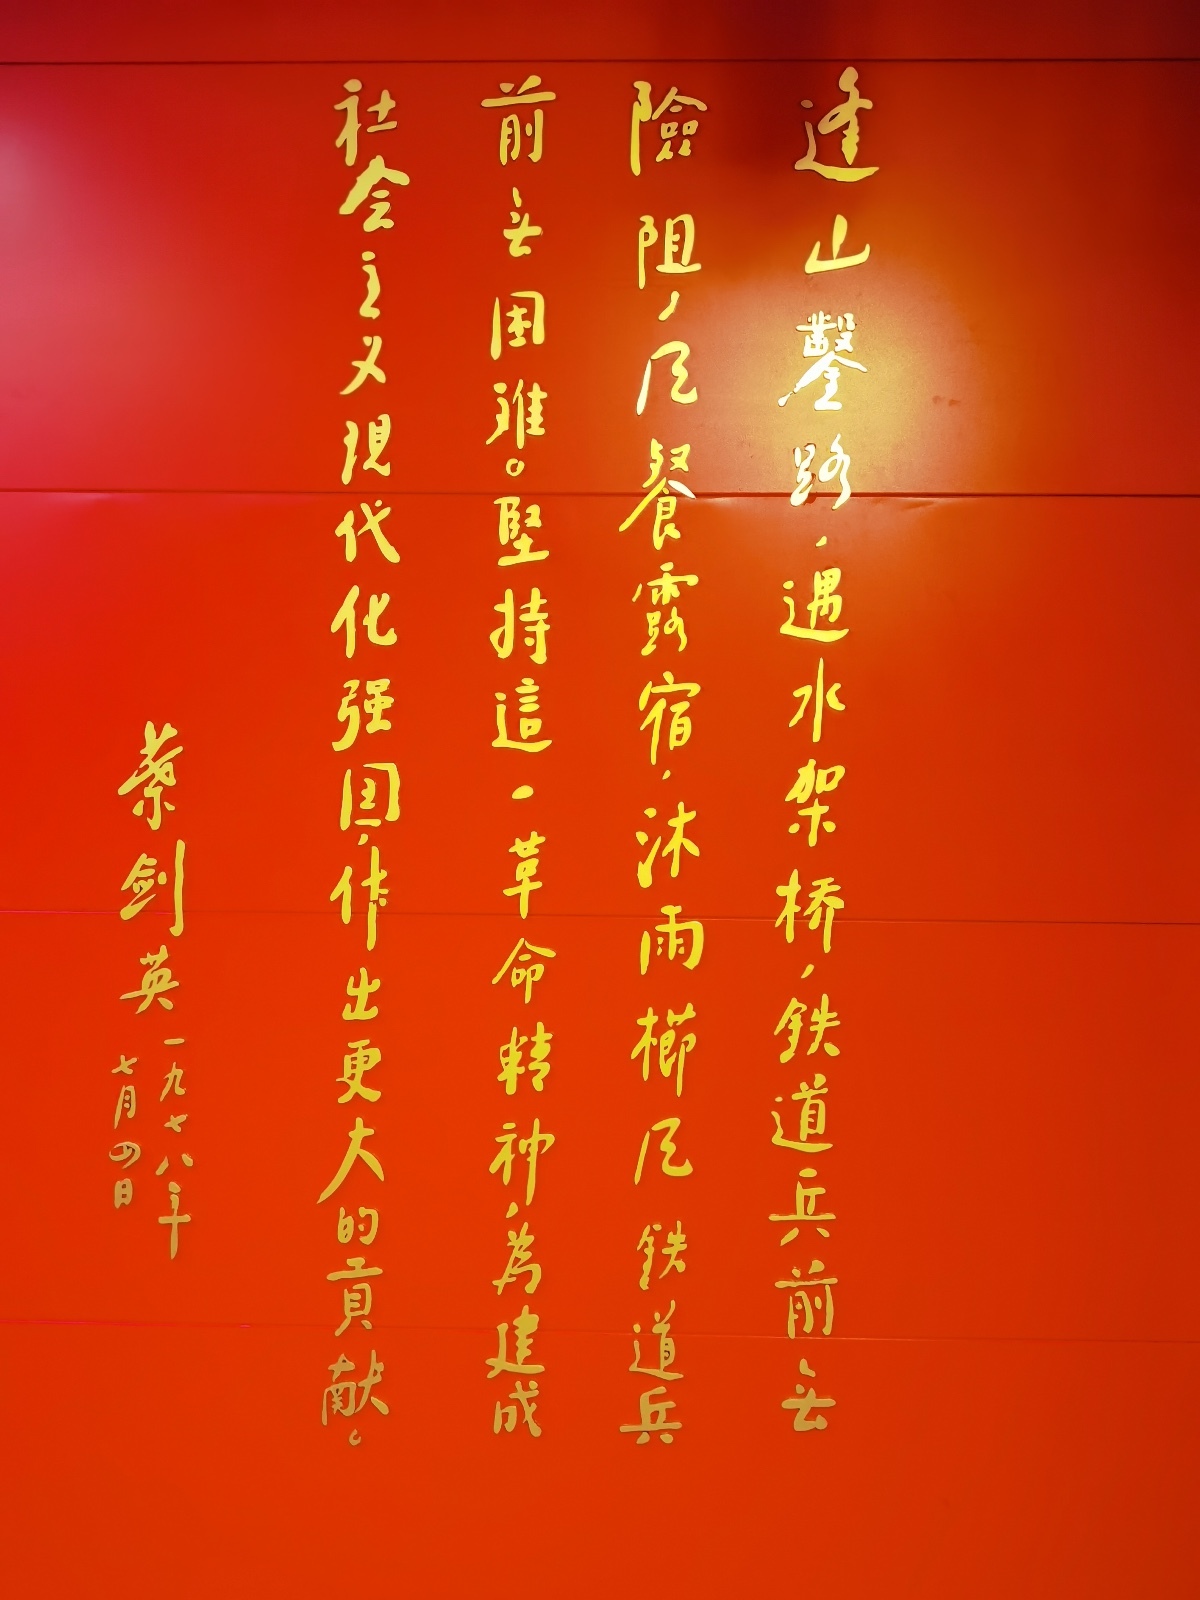 逢山鑿路，遇水架桥，鉄道兵前无
險阻，风餐露宿，沐雨櫛风鉄道兵
前无困难。堅持這一革命精神，为建成
社会主义現代化强国，作出更大的貢献。
葉剑英
一九七八年
七月四日